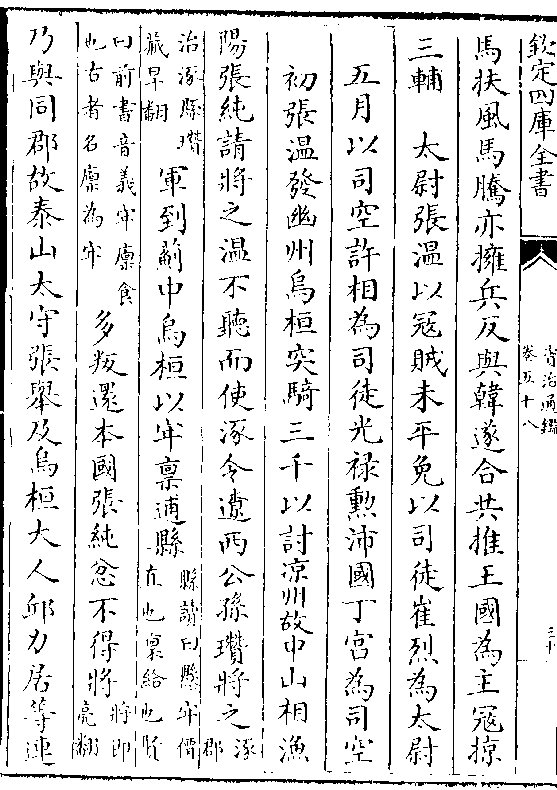 欽定四庫全書
資治通鑑
卷五十八
三十
馬扶風馬騰亦擁兵反與韓遂合共推王國為主冦掠
三輔　太尉張温以冦賊未平免以司徒崔烈為太尉
五月以司空許相為司徒光禄勲沛國丁宫為司空
初張温發幽州烏桓突騎三千以討涼州故中山相漁
陽張純請將之温不聽而使涿令遼西公孫瓚將之涿郡
治涿縣瓚藏旱翻軍到薊中烏桓以牢禀逋縣縣讀曰懸牢價直也禀給也賢
曰前書音義牢廪食也古者名廪為牢多叛還本國張純忿不得將將即亮翻
乃與同郡故泰山太守張舉及烏桓大人邱力居等連